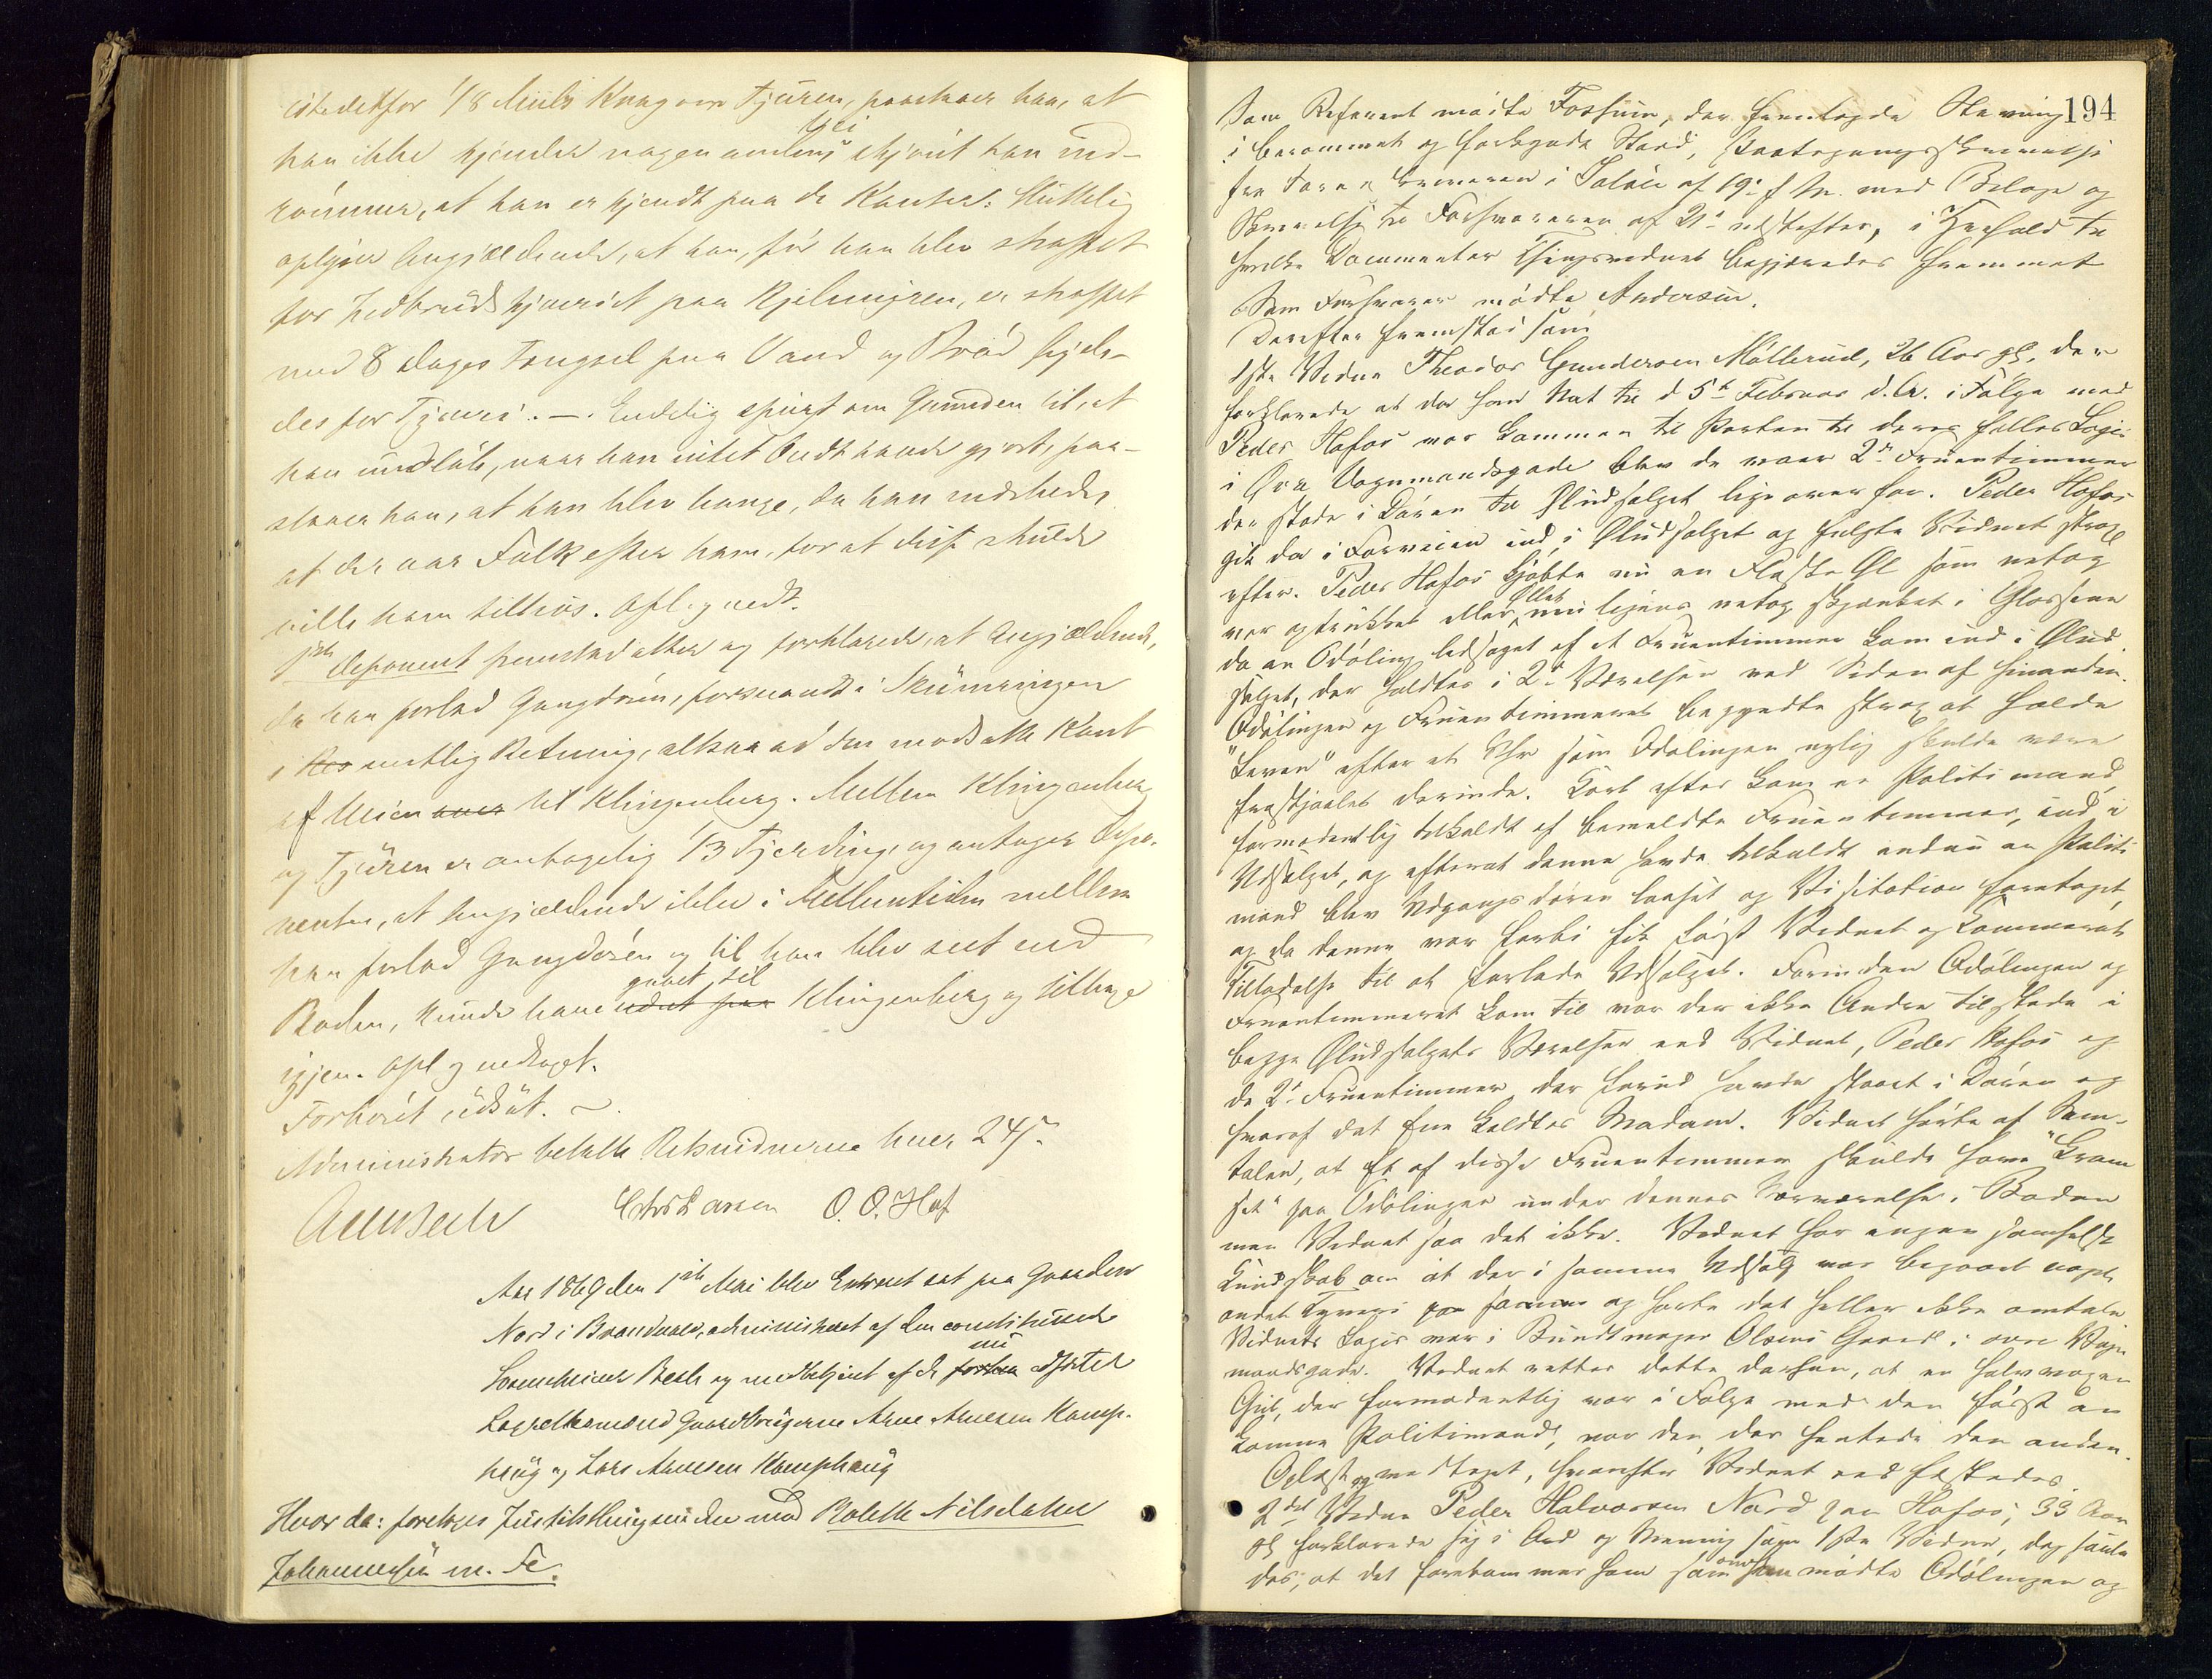 istedetfor 1/8 Miils Krog over Tjuren, paastaaer han, at
han ikke kjender nogen anden Vei skjønt han ind-
rømmer, at han er kjendt paa de Kanter. Sluttelig
oplyser Angjældende, at han, før han blev straffet
for Indbrudstyverict paa Kjelmyren, er straffet
med 8 Dages Fængsel paa Vand og Brød ligele-
des for Tyveri. — Endelig spurgt om Grunden til, at
han undløb, naar han intet Ondt havde gjort, paa-
staaer han, at han blev bange, da han mærkede,
at der var Folk efter ham, for at disse skulde
ville ham tillivs. Opl. og vedt.
1ste Deponent fremstod atter og forklarede, at Angjældende,
da han forlod Gangdøren, forsvandt i Skumringen
i østlig Retning, altsaa ad den modsatte Kant
af Veien over til Klingenberg. Mellem Klingenberg
og Tjuren er antagelig 1/3 Fjerding, og antager Depo-
nenten, at Angjældende ikke i Mellemtiden mellem
han forlod Gangdøren og til han blev seet ved
Boden, kunde have gaaet til Klingenberg og tilbage
igjen. Opl. og vedtaget.
Forhøret udsat.
Administrator betalte Retsvidnerne hver 24 ß.
Chr. Larsen O. O. Hof
Aar 1869 den 1ste Mai blev Extraret sat paa Gaarden
Nord i Brandvold, administreret af den constituerede
Sorenskriver Bech og medbetjent af de nu edfæstede
Laugrettesmænd Gaardbrugerne Arne Arnesen Kamp-
houg og Lars Arnesen Kamphoug
Hvorda: foretoges Justitsthingsvidne mod Bolette Nilsdatter
Johannessen m. Fl.
194
Som Referent mødte Fossum, der fremlagde Stevning
i berammet og forkyndt Stand, Paategningsskrivelse
fra Sorenskriveren i Soløer af 19. f. M. med Bilage og
Skrivelse til Forsvareren af 21. næstefter, i Henhold til
hvilke Documenter Thingsvidnet begjæredes fremmet
Som Forsvarer mødte Andersen.
Derefter fremstod som
1ste Vidne Theodor Gundersen Møllerud, 26 Aar gl., der
forklarede at da han Nat til d 5te Februar d. A. i Følge med
Peder Hofos var kommen til Porten til deres fælles Logis
i Øvre Vognmandsgade blev de vaer 2de Fruentimmer
der stode i Døren til Øludsalget lige over for. Peder Hofos
gik da i Forveien ind i Øludsalget og fulgte Vidnet strax
efter. Peder Hofos kjøbte nu en Flaske Øl som netop
var optrukket eller Øllet nu ligens netop skjænket i Glassene
da en Odøling ledsaget af et Fruentimmer kom ind i Ølud-
salget, der holdtes i 2de Værelser ved Siden af hinanden.
Odølingen og Fruentimmeret begyndte strax at holde
"Leven" efter et Uhr som Odølingen nylig skulde være
frastjaalet derinde. Kort efter kom en Politimand,
formodentlig tilkaldt af bemeldte Fruentimmer, ind i
Udsalget, og efterat denne havde tilkaldt endnu en Politi-
mand blev Udgangsdøren laaset og Visitation foretaget,
og da denne var forbi fik først Vidnet og Kammerat
Tilladelse til at forlade Udsalget. Forinden Odølingen og
Fruentimmeret kom til var der ikke Andre tilstede i
begge Øludsalgets Værelser end Vidnet, Peder Hofos og
de 2de Fruentimmer der forud havde staaet i Døren og
hvoraf det Ene kaldtes Madam. Vidnet hørte af Sam-
talen, at Et af disse Fruentimmer skulde have "kram-
set" paa Odølingen under dennes Nærværelse i Boden
men Vidnet saa det ikke. Vidnet har ingen somhelst
Kundskab om at der i samme Udsalg var begaaet noget
andet Tyveri og hørte det heller ikke omtale
Vidnets Logis var i Bundtmager Olsens Gaard i øvre Vogn-
mandsgade. Vidnet retter dette derhen, at en halvvoxen
Gut, der formodentlig var i Følge med den først an-
komne Politimand, var den, der hentede den anden.
Oplæst og vedtaget, hvorefter Vidnet ved fratraadte.
2det Vidne Peder Halvorsen Nord paa Hofos, 33 Aar
gl. forklarede sig i Ord og Mening som 1ste Vidne, dog saale-
des, at det forekommer ham som om han mødte Odølingen og